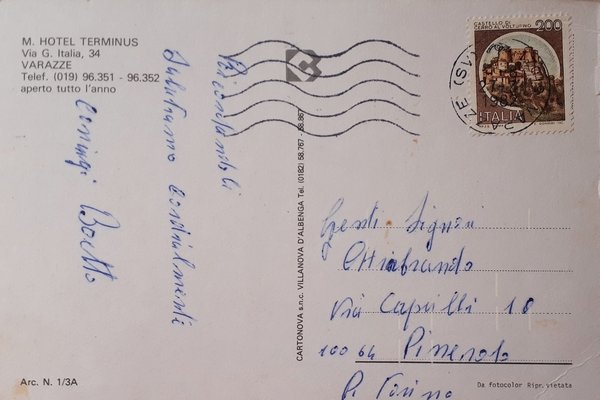 M. HOTEL TERMINUS
Via G. Italia, 34
VARAZZE
Telef. (019) 96.351 - 96.352
aperto tutto l'anno
Ricordandoli
Salutiamo cordialmente
coniugi Boetto
CARTONOVA s.n.c. VILLANOVA D'ALBENGA Tel. (0182) 58.767 - 58.867
CASTELLO DI
CERRO AL VOLTURNO
200
ITALIA
AZZE (SV)
Gent. Signori
Chiabrando
Via Caprilli 10
10064 Pinerolo
P. Torino
Arc. N. 1/3A
Da fotocolor Ripr. vietata